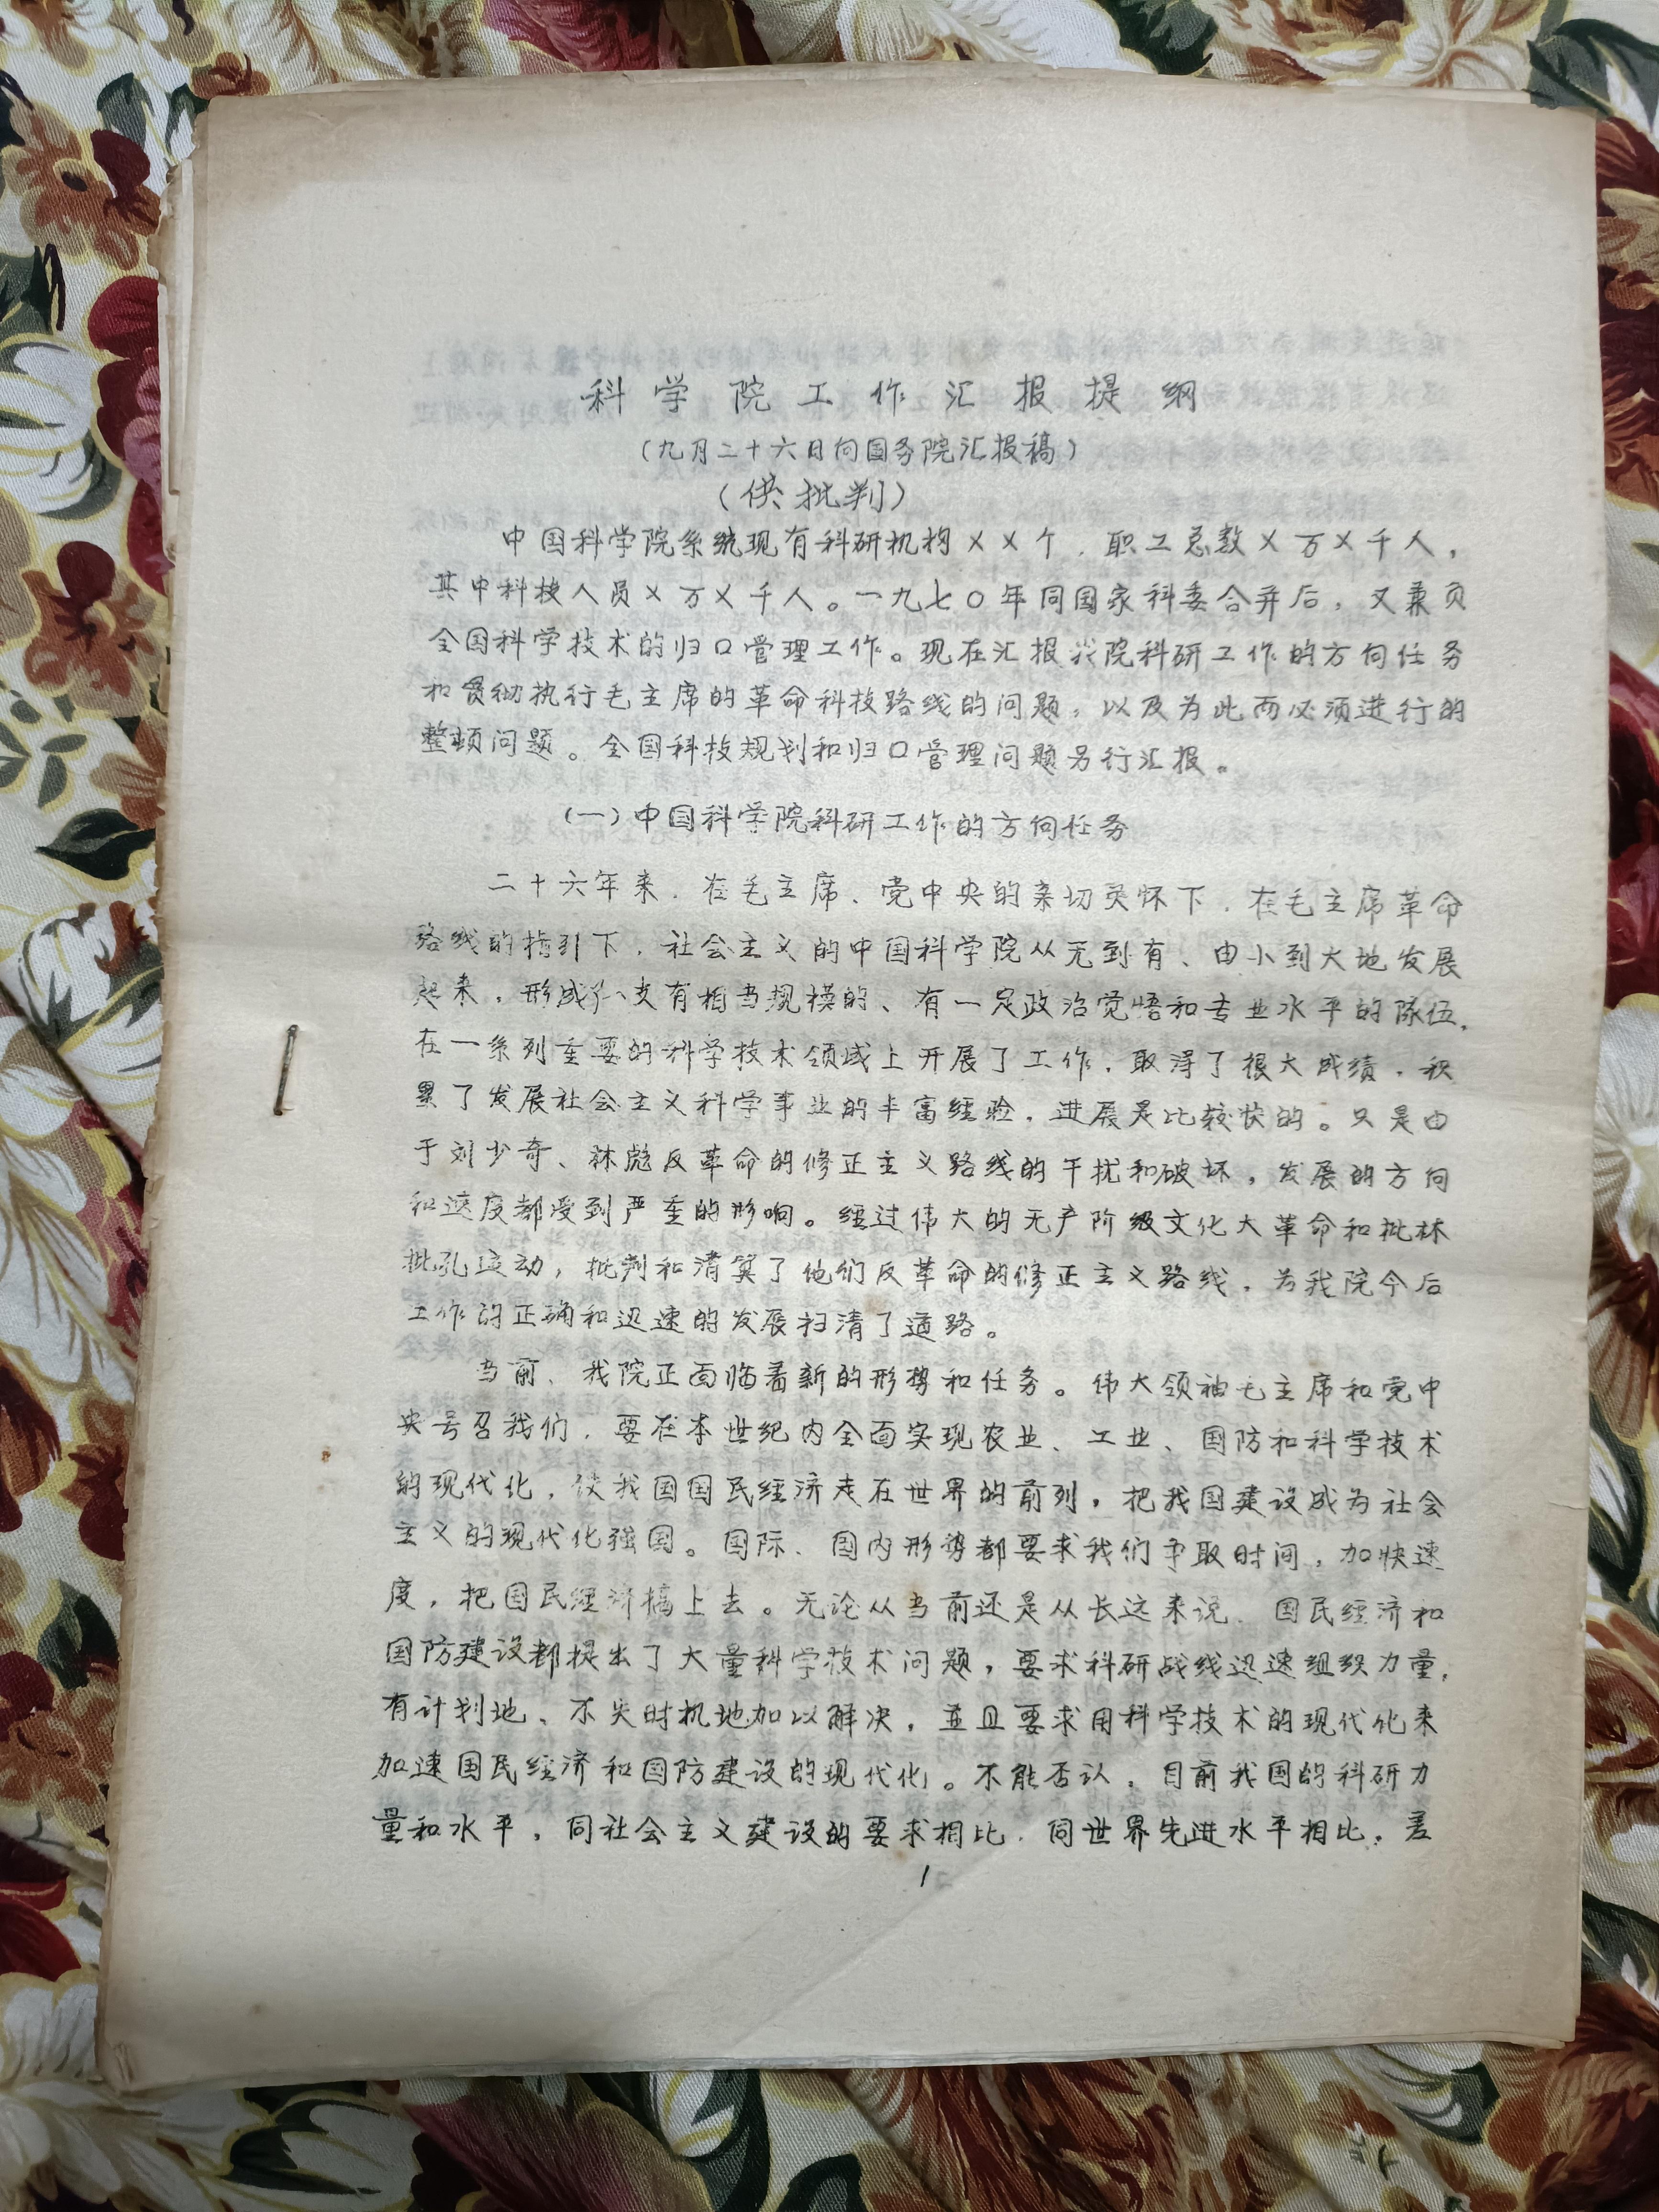 科学院工作汇报提纲
（九月二十六日向国务院汇报稿）
（供批判）
中国科学院系统现有科研机构××个，职工总数×万×千人，
其中科技人员×万×千人。一九七〇年同国家科委合并后，又兼负
全国科学技术的归口管理工作。现在汇报我院科研工作的方向任务
和贯彻执行毛主席的革命科技路线的问题，以及为此而必须进行的
整顿问题。全国科技规划和归口管理问题另行汇报。
（一）中国科学院科研工作的方向任务
二十六年来，在毛主席、党中央的亲切关怀下，在毛主席革命
路线的指引下，社会主义的中国科学院从无到有、由小到大地发展
起来，形成了一支有相当规模的、有一定政治觉悟和专业水平的队伍，
在一系列重要的科学技术领域上开展了工作，取得了很大成绩，积
累了发展社会主义科学事业的丰富经验，进展是比较快的。只是由
于刘少奇、林彪反革命的修正主义路线的干扰和破坏，发展的方向
和速度都受到严重的影响。经过伟大的无产阶级文化大革命和批林
批孔运动，批判和清算了他们反革命的修正主义路线，为我院今后
工作的正确和迅速的发展扫清了道路。
当前、我院正面临着新的形势和任务。伟大领袖毛主席和党中
央号召我们，要在本世纪内全面实现农业、工业、国防和科学技术
的现代化，使我国国民经济走在世界的前列，把我国建设成为社会
主义的现代化强国。国际、国内形势都要求我们争取时间，加快速
度，把国民经济搞上去。无论从当前还是从长远来说，国民经济和
国防建设都提出了大量科学技术问题，要求科研战线迅速组织力量，
有计划地、不失时机地加以解决，并且要求用科学技术的现代化来
加速国民经济和国防建设的现代化。不能否认，目前我国的科研力
量和水平，同社会主义建设的要求相比，同世界先进水平相比，差
1